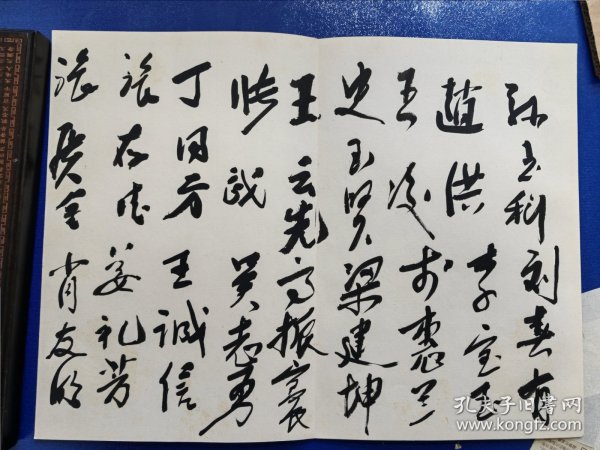 孙玉科 刘春有
赵洪 李宝玉
王凌 于惠兰
史玉贤 梁建坤
王云先 高振寰
张武 吴志勇
丁国方 王诚信
张存德 姜礼芳
张庆军 肖友明
孔夫子旧书网
www.kongfz.com